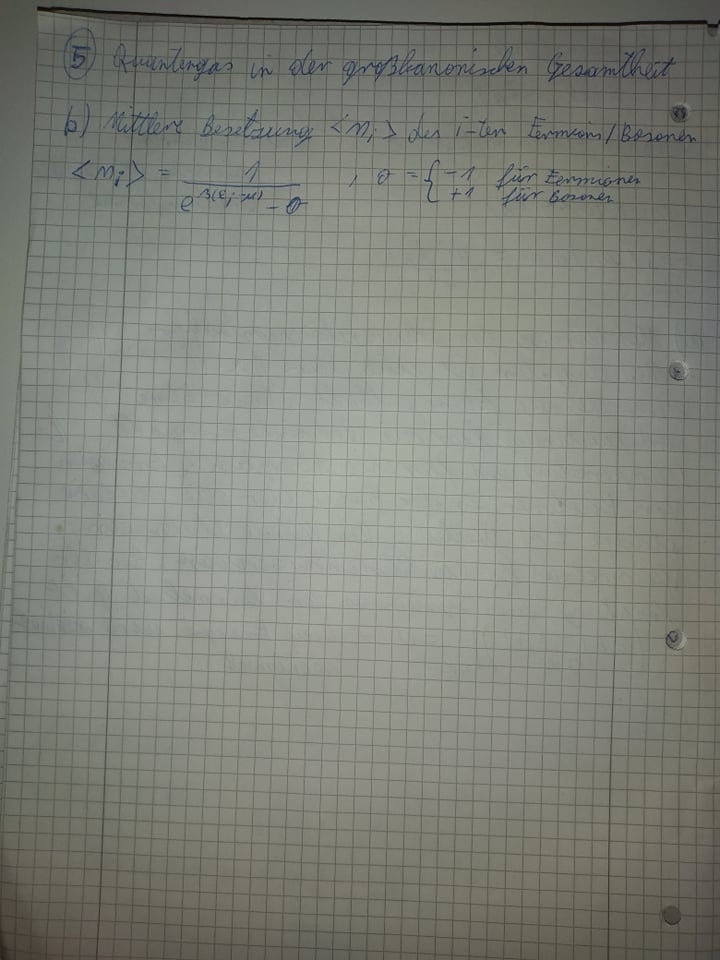 5 Quantengas in der großkanonischen Gesamtheit
b) Mittlere Besetzung <n_i> des i-ten Fermions/Bosonen
<n_i> = 1 / (e^{β(ε_i-μ)} - σ) , σ = { -1 für Fermionen
+1 für Bosonen